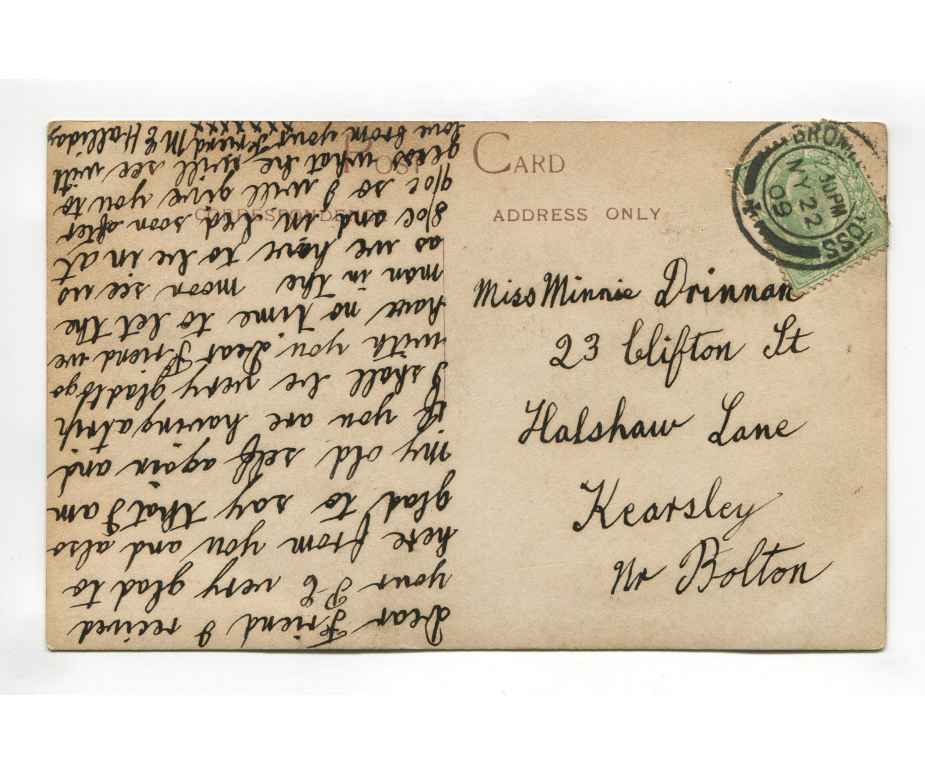 POST CARD
CORRESPONDENCE
ADDRESS ONLY
BROM CROSS
30 PM
MY 22
09
Miss Minnie Drinnan
23 Clifton St
Halshaw Lane
Kearsley
Nr Bolton
Dear Friend I recived
your P C very glad to
here from you and also
glad to say that I am
my old self again and
if you are having a trip
I shall be very glad to go
with you. Dear Friend we
have no time to let the
man in the moon see us
as we have to be in at
8/oc and in bed soon after
9/oc so I will give you to
gess what he will see with
love from your Friend M E Halliday
xxxxxxx